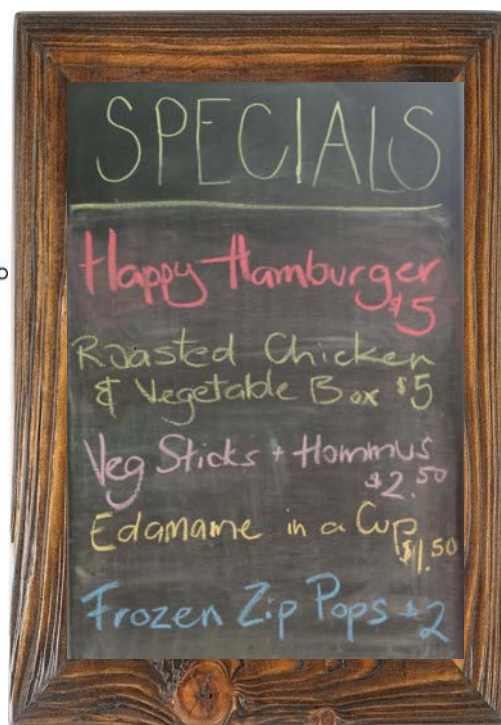 SPECIALS
Happy Hamburger
$5
Roasted Chicken
& Vegetable Box $5
Veg Sticks + Hommus
$2.50
Edamame in a Cup
$1.50
Frozen Zip Pops $2